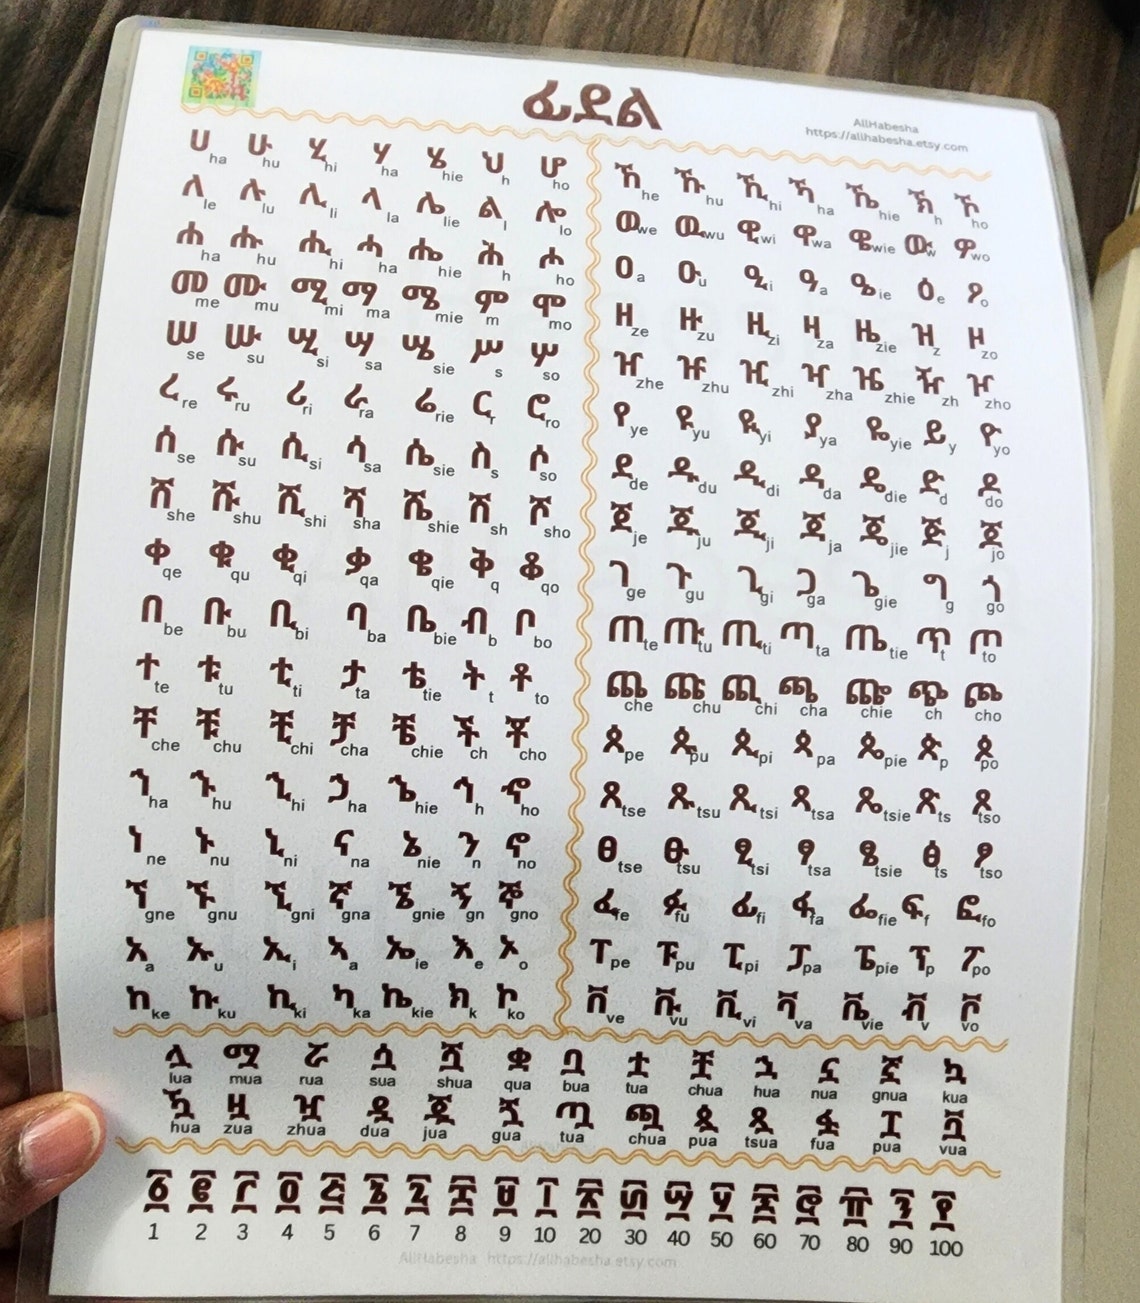 ፊደል
AllHabesha
https://allhabesha.etsy.com
ሀ ha ሁ hu ሂ hi ሃ ha ሄ hie ህ h ሆ ho
ለ le ሉ lu ሊ li ላ la ሌ lie ል l ሎ lo
ሐ ha ሑ hu ሒ hi ሓ ha ሔ hie ሕ h ሖ ho
መ me ሙ mu ሚ mi ማ ma ሜ mie ም m ሞ mo
ሠ se ሡ su ሢ si ሣ sa ሤ sie ሥ s ሦ so
ረ re ሩ ru ሪ ri ራ ra ሬ rie ር r ሮ ro
ሰ se ሱ su ሲ si ሳ sa ሴ sie ስ s ሶ so
ሸ she ሹ shu ሺ shi ሻ sha ሼ shie ሽ sh ሾ sho
ቀ qe ቁ qu ቂ qi ቃ qa ቄ qie ቅ q ቆ qo
በ be ቡ bu ቢ bi ባ ba ቤ bie ብ b ቦ bo
ተ te ቱ tu ቲ ti ታ ta ቴ tie ት t ቶ to
ቸ che ቹ chu ቺ chi ቻ cha ቼ chie ች ch ቾ cho
ኀ ha ኁ hu ኂ hi ኃ ha ኄ hie ኅ h ኆ ho
ነ ne ኑ nu ኒ ni ና na ኔ nie ን n ኖ no
ኘ gne ኙ gnu ኚ gni ኛ gna ኜ gnie ኝ gn ኞ gno
አ a ኡ u ኢ i ኣ a ኤ ie እ e ኦ o
ከ ke ኩ ku ኪ ki ካ ka ኬ kie ክ k ኮ ko
ኸ he ኹ hu ኺ hi ኻ ha ኼ hie ኽ h ኾ ho
ወ we ዉ wu ዊ wi ዋ wa ዌ wie ው w ዎ wo
ዐ a ዑ u ዒ i ዓ a ዔ ie ዕ e ዖ o
ዘ ze ዙ zu ዚ zi ዛ za ዜ zie ዝ z ዞ zo
ዠ zhe ዡ zhu ዢ zhi ዣ zha ዤ zhie ዥ zh ዦ zho
የ ye ዩ yu ዪ yi ያ ya ዬ yie ይ y ዮ yo
ደ de ዱ du ዲ di ዳ da ዴ die ድ d ዶ do
ጀ je ጁ ju ጂ ji ጃ ja ጄ jie ጅ j ጆ jo
ገ ge ጉ gu ጊ gi ጋ ga ጌ gie ግ g ጎ go
ጠ te ጡ tu ጢ ti ጣ ta ጤ tie ጥ t ጦ to
ጨ che ጩ chu ጪ chi ጫ cha ጬ chie ጭ ch ጮ cho
ጰ pe ጱ pu ጲ pi ጳ pa ጴ pie ጵ p ጶ po
ጸ tse ጹ tsu ጺ tsi ጻ tsa ጼ tsie ጽ ts ጾ tso
ፀ tse ፁ tsu ፂ tsi ፃ tsa ፄ tsie ፅ ts ፆ tso
ፈ fe ፉ fu ፊ fi ፋ fa ፌ fie ፍ f ፎ fo
ፐ pe ፑ pu ፒ pi ፓ pa ፔ pie ፕ p ፖ po
ቨ ve ቩ vu ቪ vi ቫ va ቬ vie ቭ v ቮ vo
ሏ ሟ ሯ ሷ ሿ ቋ ቧ ቷ ቿ ኋ ኗ ኟ ኳ
lua mua rua sua shua qua bua tua chua hua nua gnua kua
ዃ ዟ ዧ ዷ ጇ ጓ ጧ ጯ ጷ ጿ ፏ ፗ ቯ
hua zua zhua dua jua gua tua chua pua tsua fua pua vua
፩ ፪ ፫ ፬ ፭ ፮ ፯ ፰ ፱ ፲ ፳ ፴ ፵ ፶ ፷ ፸ ፹ ፺ ፻
1 2 3 4 5 6 7 8 9 10 20 30 40 50 60 70 80 90 100
AllHabesha https://allhabesha.etsy.com